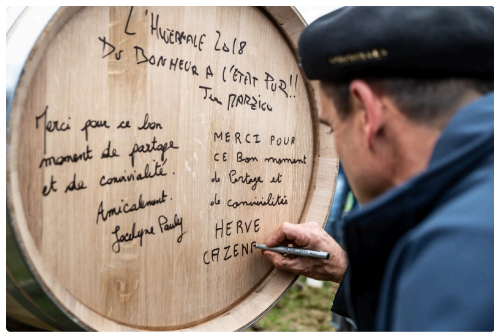 L'HIVERNALE 2018
DU BONHEUR A L'ÉTAT PUR!!
Merci pour ce bon
moment de partage
et de convivialité.
Amicalement.
Jocelyne Pauly
MERCI POUR
CE BON moment
de Partage et
de convivialité
HERVE
CAZENA